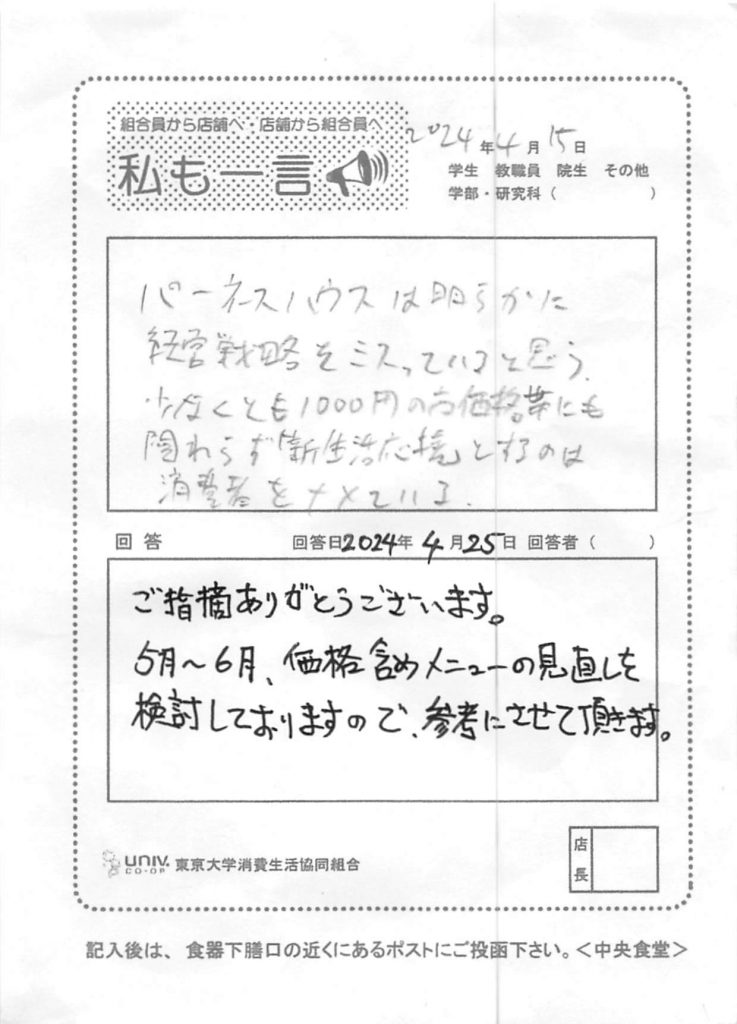 組合員から店舗へ・店舗から組合員へ
私も一言
2024年4月15日
学生 教職員 院生 その他
学部・研究科( )
バーネスハウスは明らかに
経営戦略をミスっていると思う。
少なくとも1000円の高価格帯にも
関わらず「新生活応援」とするのは
消費者をナメている。
回答 回答日2024年4月25日 回答者( )
ご指摘ありがとうございます。
5月～6月、価格含めメニューの見直しを
検討しておりますので、参考にさせて頂きます。
店長
UNIV. CO-OP 東京大学消費生活協同組合
記入後は、食器下膳口の近くにあるポストにご投函下さい。＜中央食堂＞